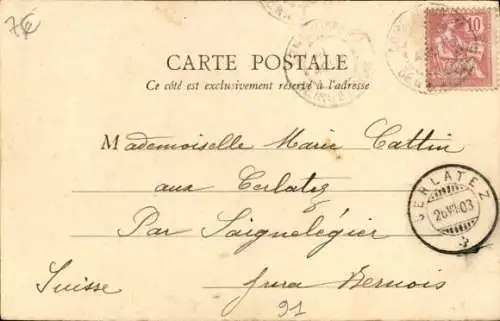 7€
10
CARTE POSTALE
Ce côté est exclusivement réservé à l'adresse
Mademoiselle Marie Cattin
aux Cerlatez
Par Saignelégier
Suisse Jura Bernois
CERLATEZ
26 VII 03
91